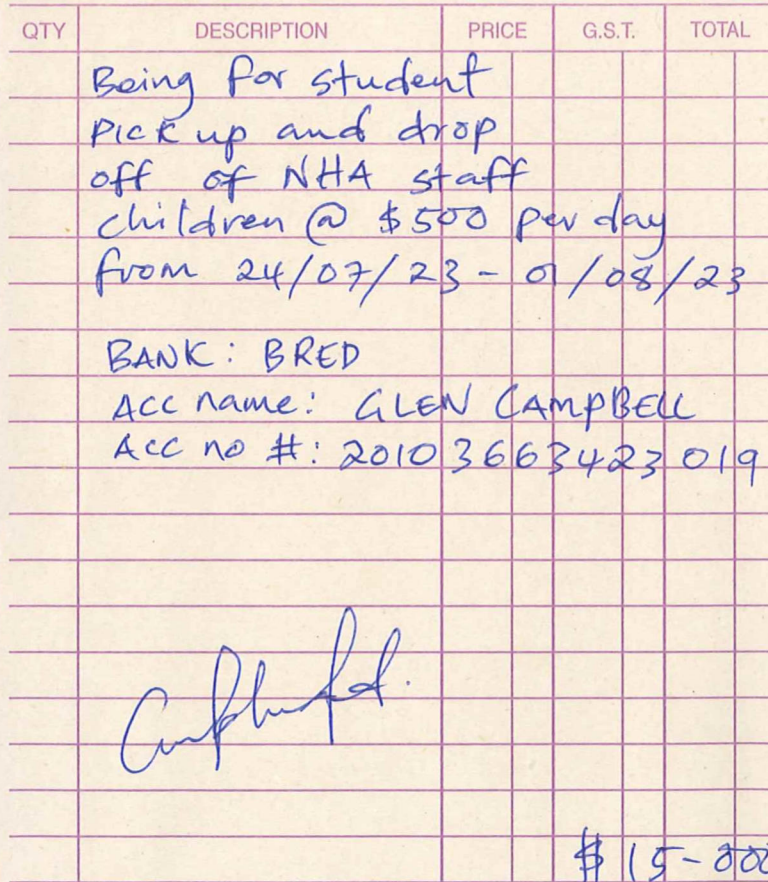 QTY DESCRIPTION PRICE G.S.T. TOTAL
Being for student
Pick up and drop
off of NHA staff
children @ $500 per day
from 24/07/23 - 01/08/23
BANK: BRED
Acc name: GLEN CAMPBELL
Acc no #: 20103663423019
$15-000